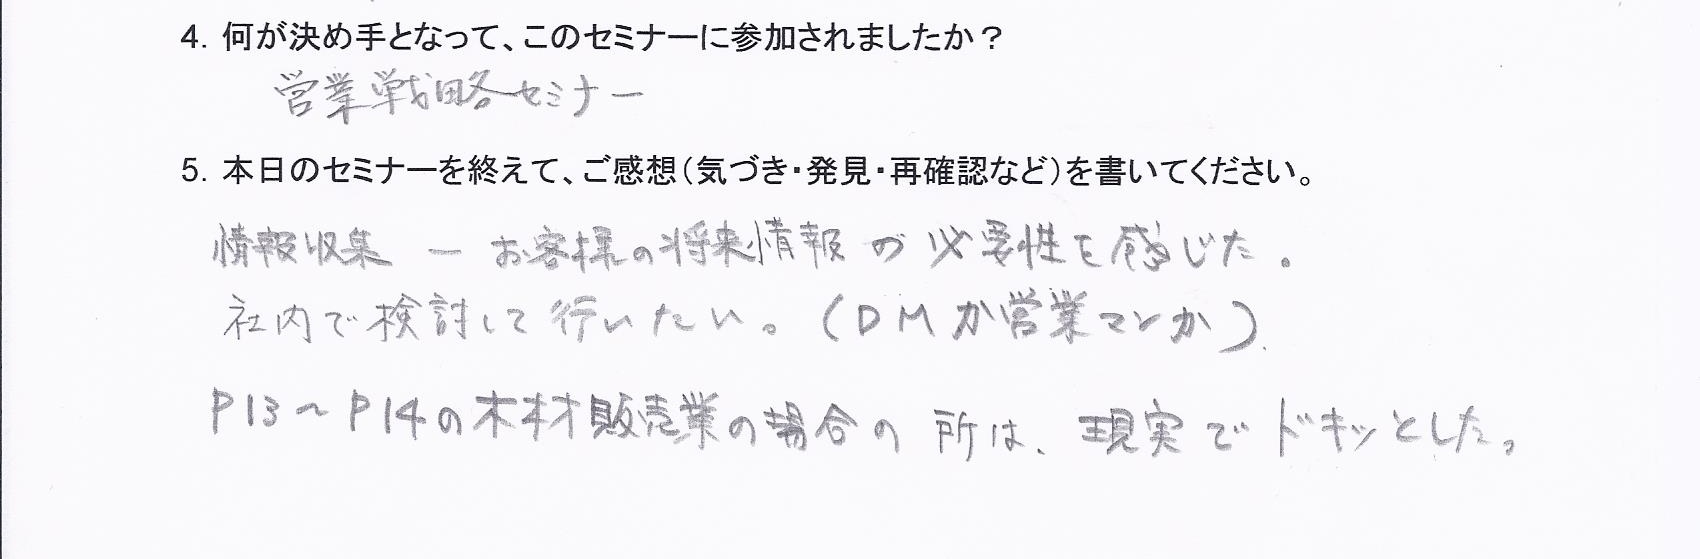 4. 何が決め手となって、このセミナーに参加されましたか？
営業戦略セミナー
5. 本日のセミナーを終えて、ご感想（気づき・発見・再確認など）を書いてください。
情報収集 ー お客様の将来情報の必要性を感じた。
社内で検討して行いたい。（DMか営業マンか）
P13〜P14の木材販売業の場合の所は、現実でドキッとした。